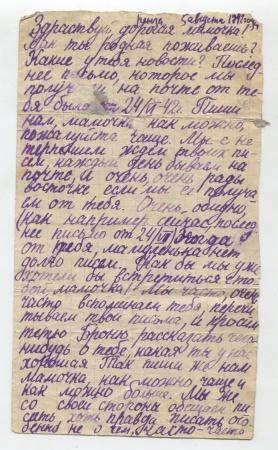 Пенза 5 августа 1942 года
Здравствуй дорогая мамочка!
Как ты родная поживаешь?
Какие у тебя новости? Послед
нее письмо, которое мы
получ на почте от те-
бя было от 24/VI-42г. Пиши
нам, мамочка, как можно,
пожалуйста чаще. Мы с не
терпением ждём твоих пи
сем, каждый день бываем на
почте, и очень, очень рады
весточке если мы её получа
ем от тебя. Очень, обидно,
как например сейчас, послед
нее письмо от 24/VI, когда
от тебя, мамуленька нет
долго писем. Как бы мы уже
хотели бы встретиться с то
бой мамочка! Мы часто, очень
часто вспоминаем тебя, перечи
тываем твои письма, и просим
тётю Броню рассказать что
нибудь о тебе, какая ты у нас
хорошая. Так пиши же нам
мамочка как можно, чаще и
как можно больше. Мы же
со своей стороны обещаем пи
сать, хоть правда писать осо
бенно не о чем. Часто-часто